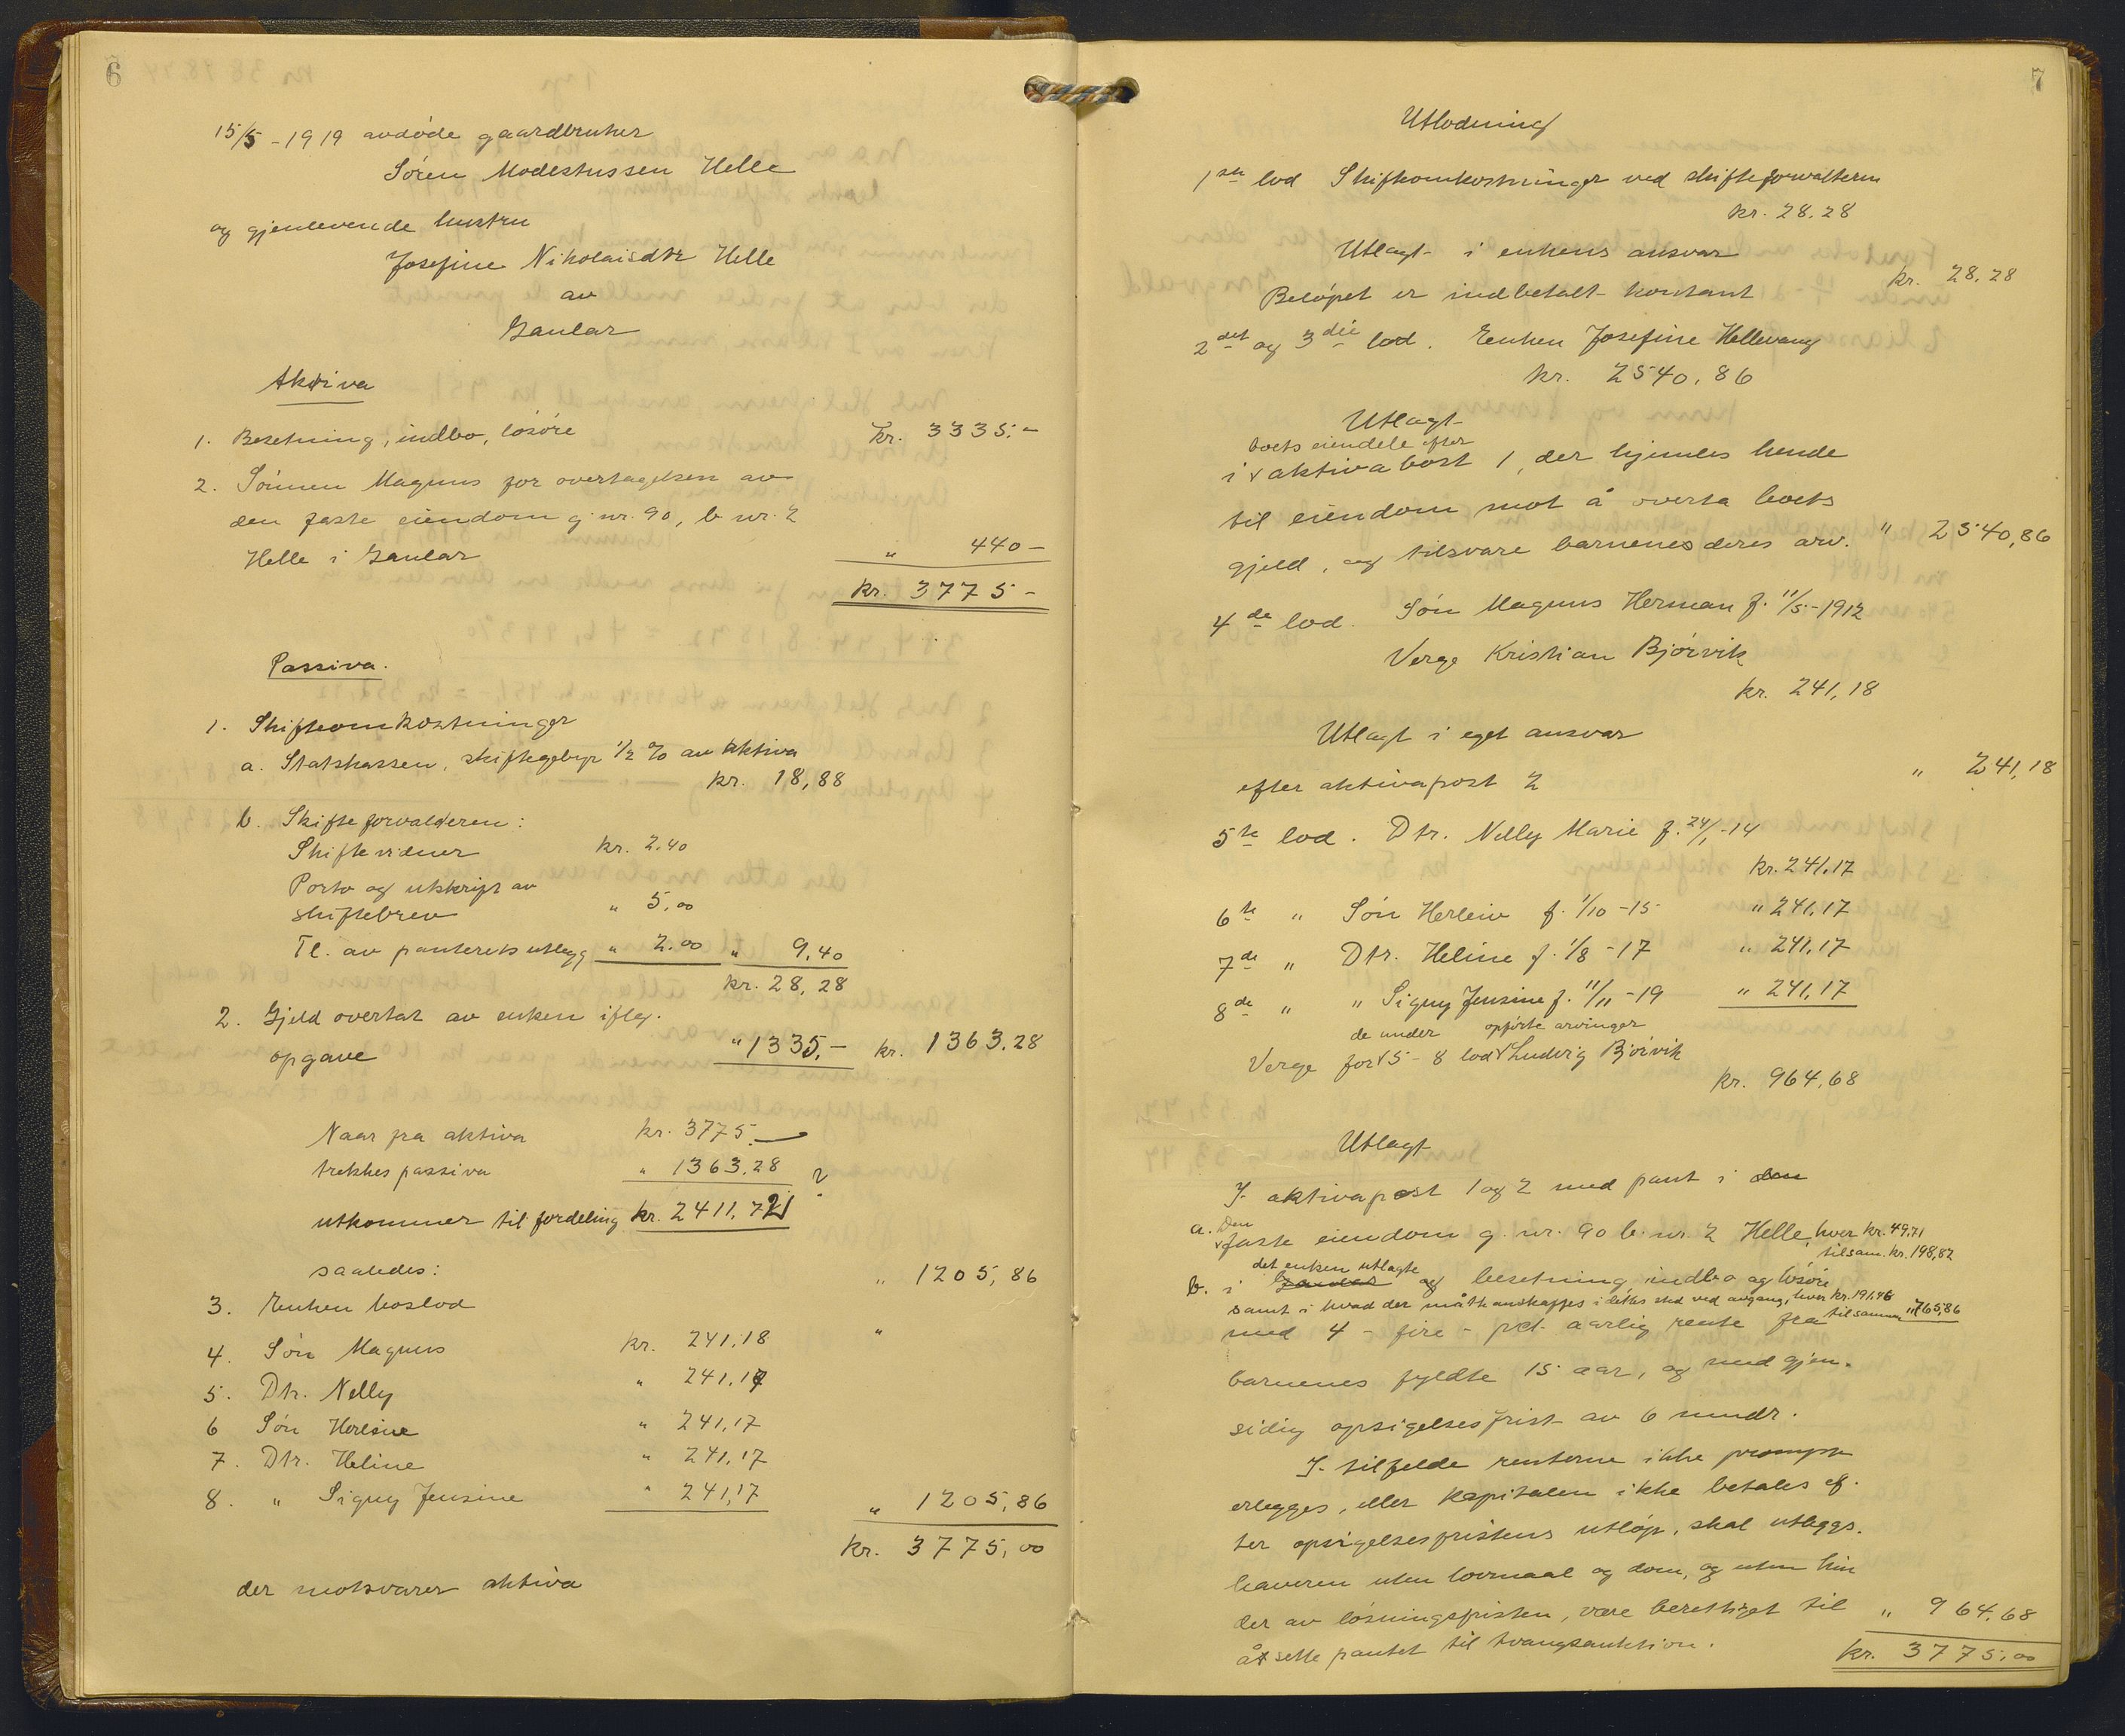 6
15/5 - 1919 avdøde gaardbruker
Søren Modestussen Helle
og gjenlevende hustru
Josefine Nikolaisdtr Helle
av
Gaular
Aktiva
1. Besetning, indbo, løsøre kr. 3335.-
2. Sønnen Magnus for overtagelsen av
den faste eiendom g. nr. 90, b. nr. 2
Helle i Gaular " 440 -
kr. 3775 -
Passiva.
1. Skifteomkostninger
a. Statskassen, skiftegebyr 1/2 % av aktiva
kr. 18,88
b. Skifteforvalderen:
Skiftevidner kr. 2.40
Porto og utskrift av
skiftebrev " 5,00
Tl. av panteretsutlegg " 2.00 " 9,40
kr. 28,28
2. Gjeld overtat av enken ifLg.
opgave " 1335,- kr. 1363.28
Naar fra aktiva kr. 3775.-
trekkes passiva " 1363.28
utkommer til fordeling kr. 2411.72
saaledes:
3. Enken boslod " 1205,86
4. Søn Magnus kr. 241,18 "
5. Dtr. Nelly " 241.17
6 Søn Herleive " 241,17
7. Dtr. Heline " 241,17
8. " Signy Jensine " 241,17 " 1205,86
kr. 3775,00
der motsvarer aktiva
7
Utlodning
1ste lod Skifteomkostninger ved skifteforvalteren
kr. 28.28
Utlagt i enkens ansvar
Beløpet er indbetalt kontant kr. 28,28
2det og 3die lod. Enken Josefine Hellevang
kr. 2540,86
Utlagt
boets eiendele efter
i aktivapost 1, der hjemles hende
til eiendom mot å overta boets
gjeld, og tilsvare barnenes deres arv. " 2540,86
4de lod. Søn Magnus Herman f. 11/5-1912
Verge Kristian Bjørvik
kr. 241,18
Utlagt i eget ansvar
efter aktivapost 2 " 241,18
5te lod. Dtr. Nelly Marie f. 24/1-14
kr. 241.17
6te " Søn Herleiv f. 1/10-15 " 241,17
7de " Dtr. Heline f. 1/8-17 " 241,17
8de " " Signy Jensine f. 11/11-19 " 241,17
de under opførte arvinger
Verge for 5-8 lod Ludvig Bjørvik
kr. 964,68
Utlagt
I aktivapost 1 og 2 med pant i den
a. Den
faste eiendom g. nr. 90 b. nr. 2 Helle, hver kr. 49,71
tilsam. kr. 198,82
det enken utlagte
b. i Gaular og besetning, indbo og løsøre
samt i hvad der måtte anskaffes i dettes sted ved avgang, hver kr. 191,46
tilsammen " 765,86
med 4 - fire - pct. aarlig rente fra
barnenes fyldte 15 aar, og med gjen-
sidig opsigelsesfrist av 6 mndr.
I tilfelde renterne ikke prompt
erlegges, eller kapitalen ikke betales ef-
ter opsigelsesfristens utløp, skal utlegs-
haveren uten lovmaal og dom, og uten hin
der av løsningsfristen, være berettiget til " 964,68
å sette pantet til tvangsauktion. kr. 3775,00